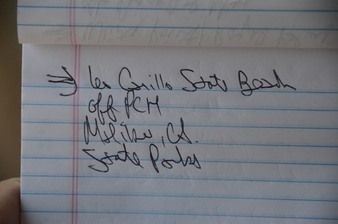 ⇒ Leo Carillo State Beach
off PCH
Malibu, CA.
State Parks